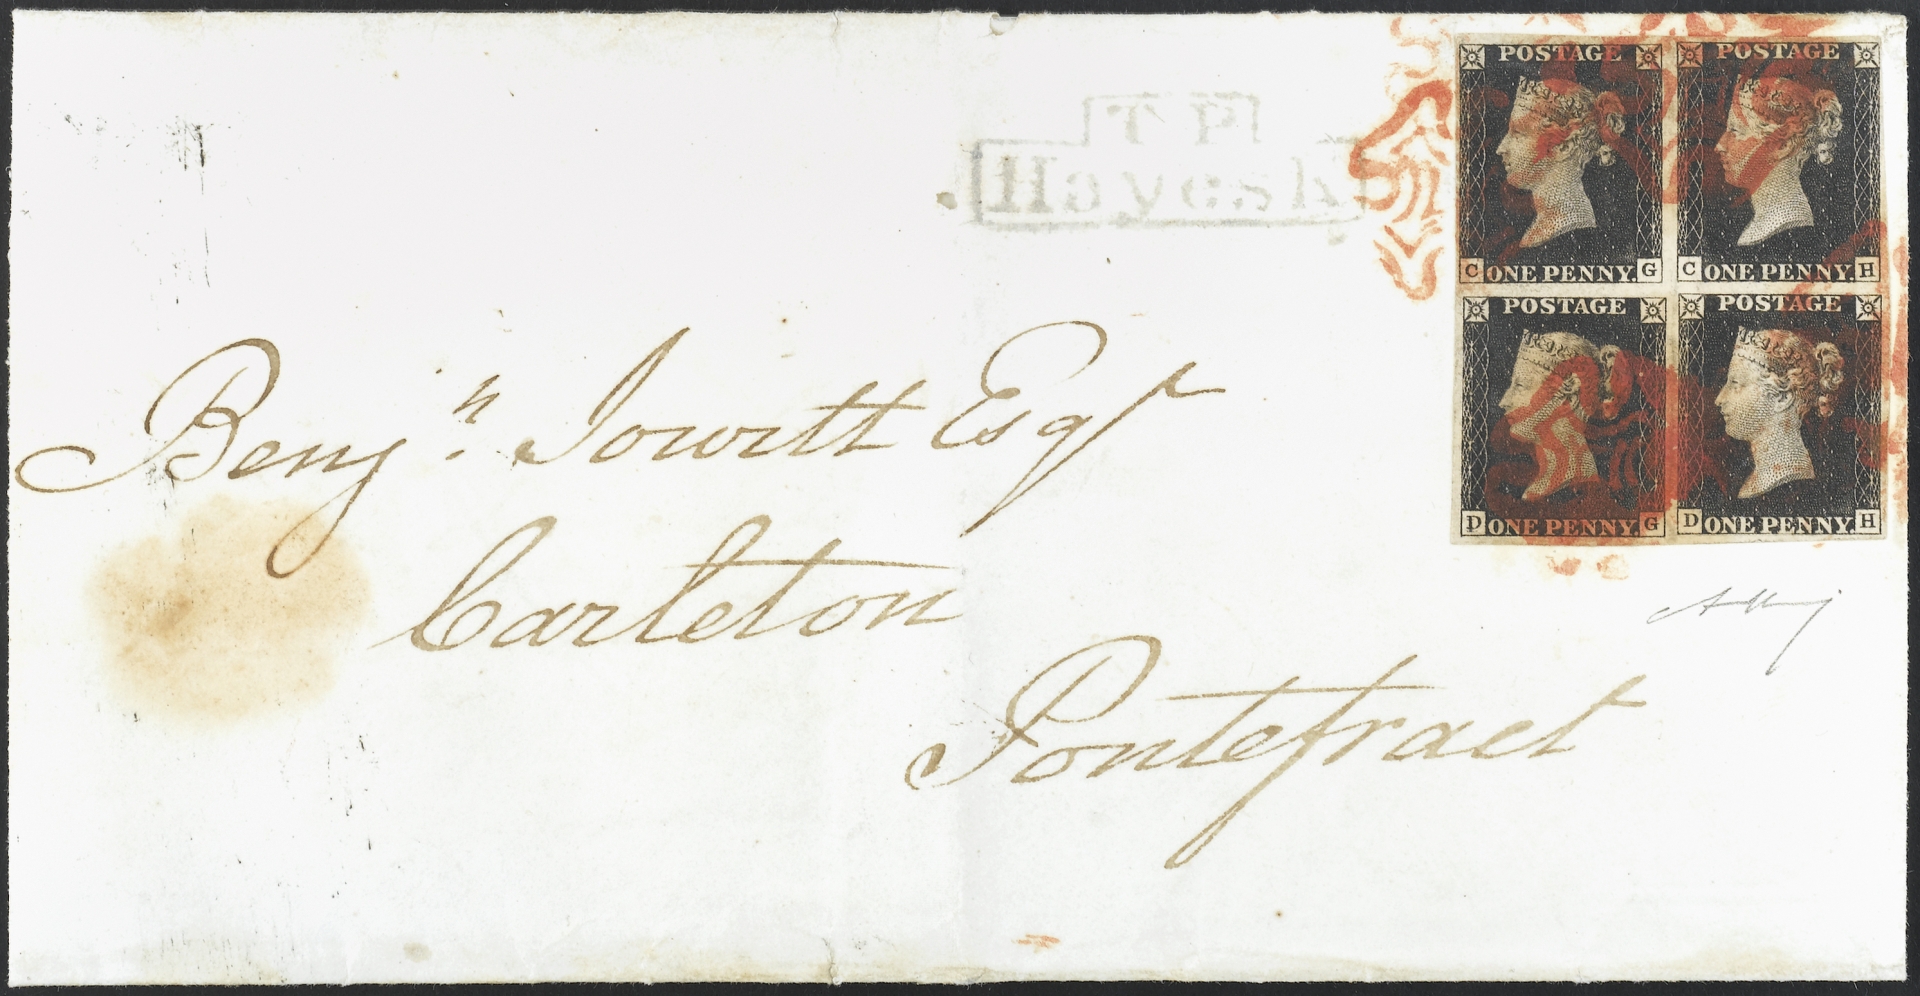 T P
Hayes
POSTAGE POSTAGE
C ONE PENNY. G C ONE PENNY. H
POSTAGE POSTAGE
D ONE PENNY. G D ONE PENNY. H
Benjn Jowitt Esqr
Carleton
Pontefract